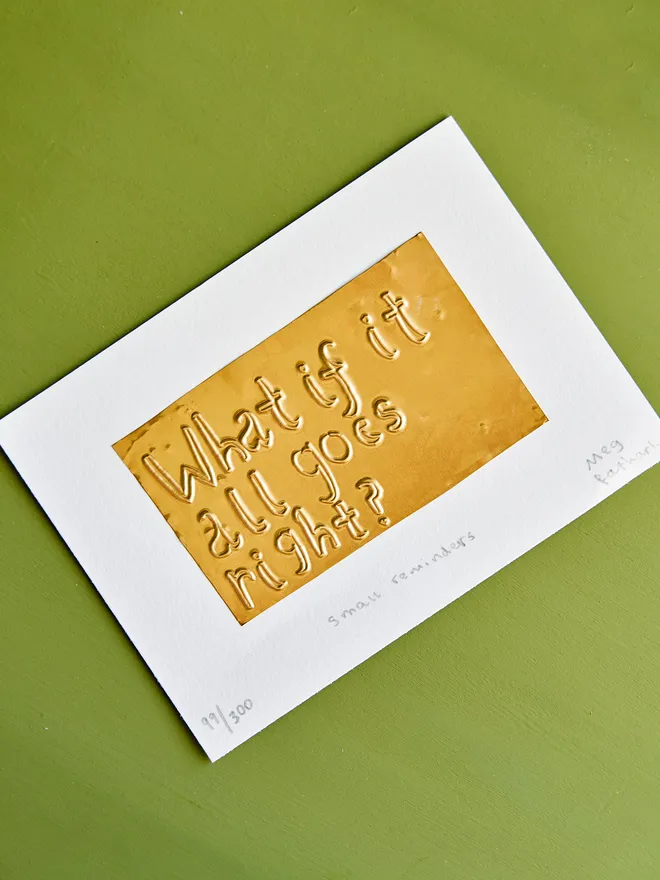 What if it
all goes
right?
small reminders
99/300
Meg